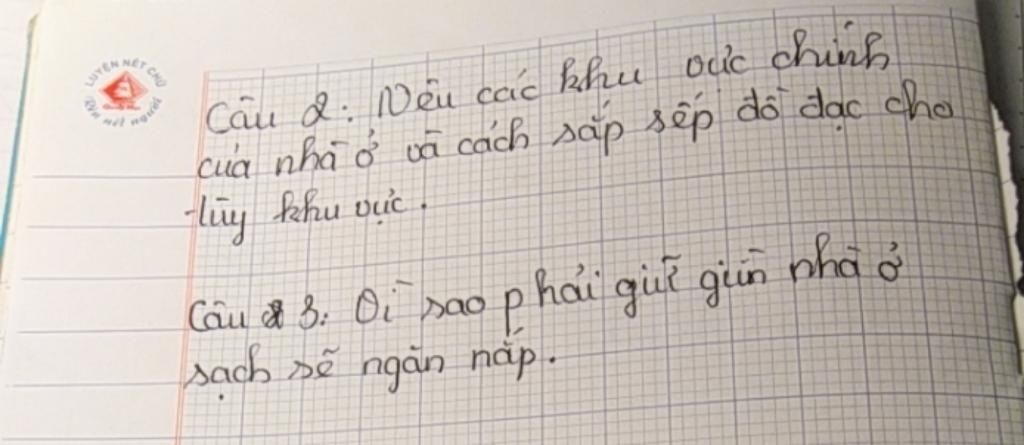 LUYỆN NÉT CHỮ
RÈN NẾT NGƯỜI
Câu 2: Nêu các khu vực chính
của nhà ở và cách sắp sếp đồ đạc cho
từng khu vực.
Câu 3: Vì sao phải giữ gìn nhà ở
sạch sẽ ngăn nắp.